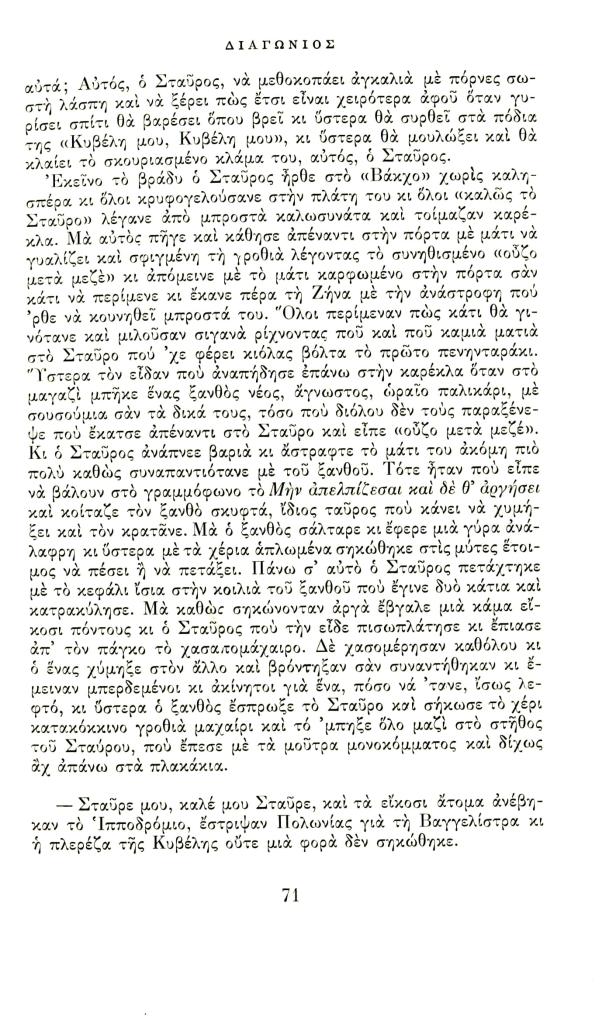 ΔΙΑΓΩΝΙΟΣ
αὐτά; Αὐτός, ὁ Σταῦρος, νὰ μεθοκοπάει ἀγκαλιὰ μὲ πόρνες σω-
στὴ λάσπη καὶ νὰ ξέρει πὼς ἔτσι εἶναι χειρότερα ἀφοῦ ὅταν γυ-
ρίσει σπίτι θὰ βαρέσει ὅπου βρεῖ κι ὕστερα θὰ συρθεῖ στὰ πόδια
της «Κυβέλη μου, Κυβέλη μου», κι ὕστερα θὰ μουλώξει καὶ θὰ
κλαίει τὸ σκουριασμένο κλάμα του, αὐτός, ὁ Σταῦρος.
Ἐκεῖνο τὸ βράδυ ὁ Σταῦρος ἦρθε στὸ «Βάκχο» χωρὶς καλη-
σπέρα κι ὅλοι κρυφογελούσανε στὴν πλάτη του κι ὅλοι «καλῶς τὸ
Σταῦρο» λέγανε ἀπὸ μπροστὰ καλωσυνάτα καὶ τοίμαζαν καρέ-
κλα. Μὰ αὐτὸς πῆγε καὶ κάθησε ἀπέναντι στὴν πόρτα μὲ μάτι νὰ
γυαλίζει καὶ σφιγμένη τὴ γροθιὰ λέγοντας τὸ συνηθισμένο «οὖζο
μετὰ μεζὲ» κι ἀπόμεινε μὲ τὸ μάτι καρφωμένο στὴν πόρτα σὰν
κάτι νὰ περίμενε κι ἔκανε πέρα τὴ Ζήνα μὲ τὴν ἀνάστροφη πού
'ρθε νὰ κουνηθεῖ μπροστά του. Ὅλοι περίμεναν πὼς κάτι θὰ γι-
νότανε καὶ μιλοῦσαν σιγανὰ ρίχνοντας ποῦ καὶ ποῦ καμιὰ ματιὰ
στὸ Σταῦρο πού 'χε φέρει κιόλας βόλτα τὸ πρῶτο πενηνταράκι.
Ὕστερα τὸν εἶδαν ποὺ ἀναπήδησε ἐπάνω στὴν καρέκλα ὅταν στὸ
μαγαζὶ μπῆκε ἕνας ξανθὸς νέος, ἄγνωστος, ὡραῖο παλικάρι, μὲ
σουσούμια σὰν τὰ δικά τους, τόσο ποὺ διόλου δὲν τοὺς παραξένε-
ψε ποὺ ἔκατσε ἀπέναντι στὸ Σταῦρο καὶ εἶπε «οὖζο μετὰ μεζέ».
Κι ὁ Σταῦρος ἀνάπνεε βαριὰ κι ἄστραφτε τὸ μάτι του ἀκόμη πιὸ
πολὺ καθὼς συναπαντιότανε μὲ τοῦ ξανθοῦ. Τότε ἦταν ποὺ εἶπε
νὰ βάλουν στὸ γραμμόφωνο τὸ Μὴν ἀπελπίζεσαι καὶ δὲ θ' ἀργήσει
καὶ κοίταζε τὸν ξανθὸ σκυφτά, ἴδιος ταῦρος ποὺ κάνει νὰ χυμή-
ξει καὶ τὸν κρατᾶνε. Μὰ ὁ ξανθὸς σάλταρε κι ἔφερε μιὰ γύρα ἀνά-
λαφρη κι ὕστερα μὲ τὰ χέρια ἁπλωμένα σηκώθηκε στὶς μύτες ἕτοι-
μος νὰ πέσει ἢ νὰ πετάξει. Πάνω σ' αὐτὸ ὁ Σταῦρος πετάχτηκε
μὲ τὸ κεφάλι ἴσια στὴν κοιλιὰ τοῦ ξανθοῦ ποὺ ἔγινε δυὸ κάτια καὶ
κατρακύλησε. Μὰ καθὼς σηκώνονταν ἀργὰ ἔβγαλε μιὰ κάμα εἴ-
κοσι πόντους κι ὁ Σταῦρος ποὺ τὴν εἶδε πισωπλάτησε κι ἔπιασε
ἀπ' τὸν πάγκο τὸ χασαπομάχαιρο. Δὲ χασομέρησαν καθόλου κι
ὁ ἕνας χύμηξε στὸν ἄλλο καὶ βρόντηξαν σὰν συναντήθηκαν κι ἔ-
μειναν μπερδεμένοι κι ἀκίνητοι γιὰ ἕνα, πόσο νά 'τανε, ἴσως λε-
φτό, κι ὕστερα ὁ ξανθὸς ἔσπρωξε τὸ Σταῦρο καὶ σήκωσε τὸ χέρι
κατακόκκινο γροθιὰ μαχαίρι καὶ τό 'μπηξε ὅλο μαζὶ στὸ στῆθος
τοῦ Σταύρου, ποὺ ἔπεσε μὲ τὰ μοῦτρα μονοκόμματος καὶ δίχως
ἂχ ἀπάνω στὰ πλακάκια.
— Σταῦρε μου, καλέ μου Σταῦρε, καὶ τὰ εἴκοσι ἄτομα ἀνέβη-
καν τὸ Ἱπποδρόμιο, ἔστριψαν Πολωνίας γιὰ τὴ Βαγγελίστρα κι
ἡ πλερέζα τῆς Κυβέλης οὔτε μιὰ φορὰ δὲν σηκώθηκε.
71